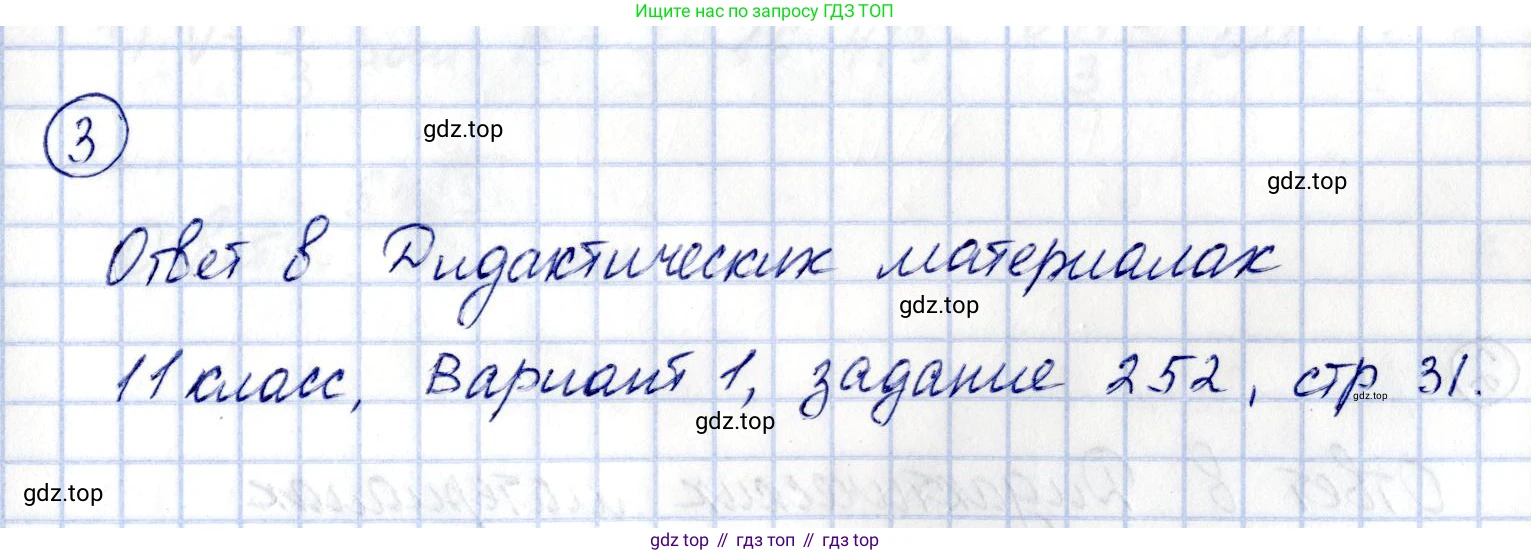 Ищите нас по запросу ГДЗ ТОП
3
gdz.top
gdz.top
Ответ в Дидактических материалах
gdz.top
11 класс, Вариант 1, задание 252, стр 31.
gdz.top
gdz.top
gdz.top
gdz top // гдз топ // гдз top